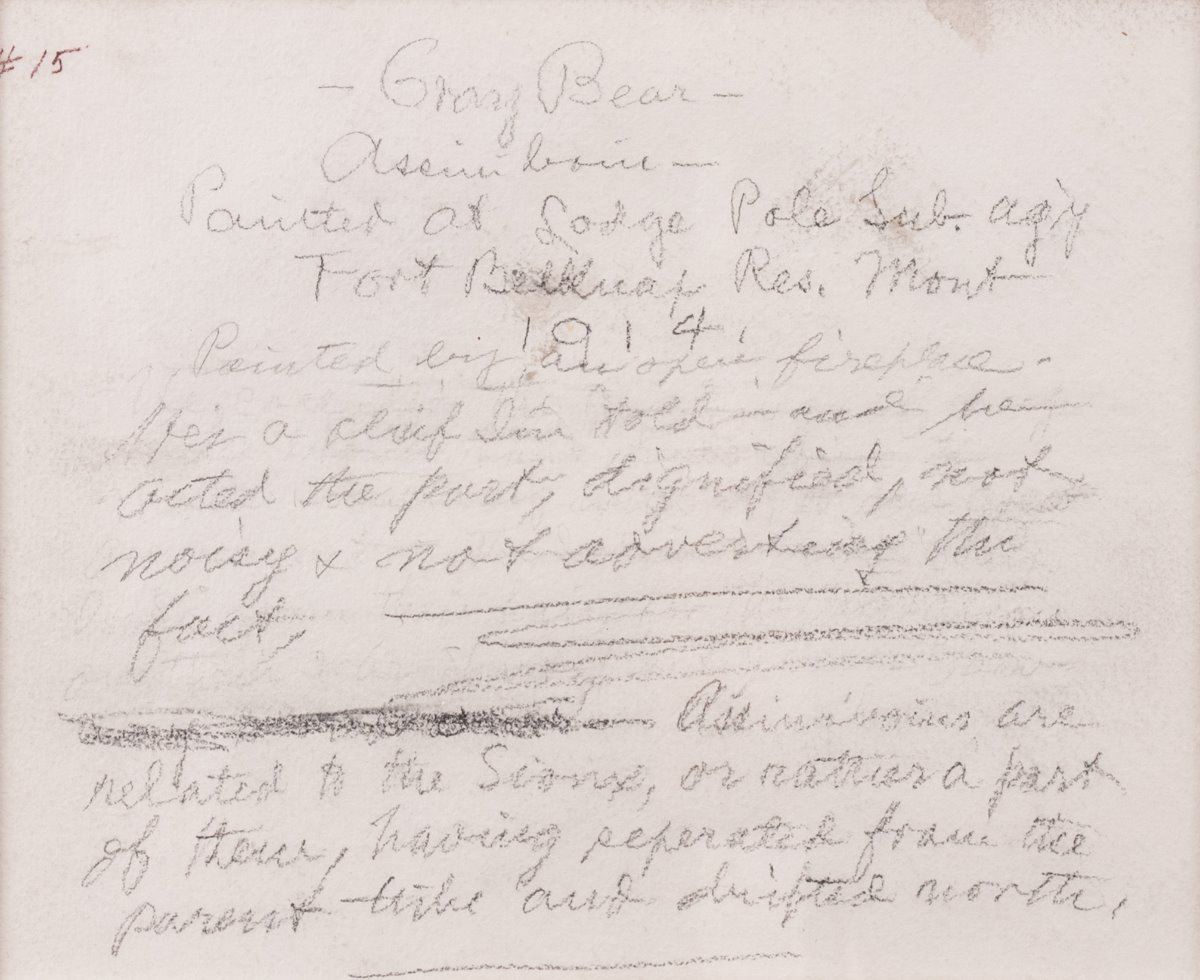 # 15
- Gray Bear -
Assiniboin -
Painted at Lodge Pole Sub. agy
Fort Belknap Res. Mont
1914.
Painted by an open fireplace.
Hes a chief Im told - and he
acted the part, dignified, not
noisy & not advertising the
fact,
- Assiniboins are
related to the Sioux, or rather a part
of them, having seperated from the
parent tribe and drifted north.